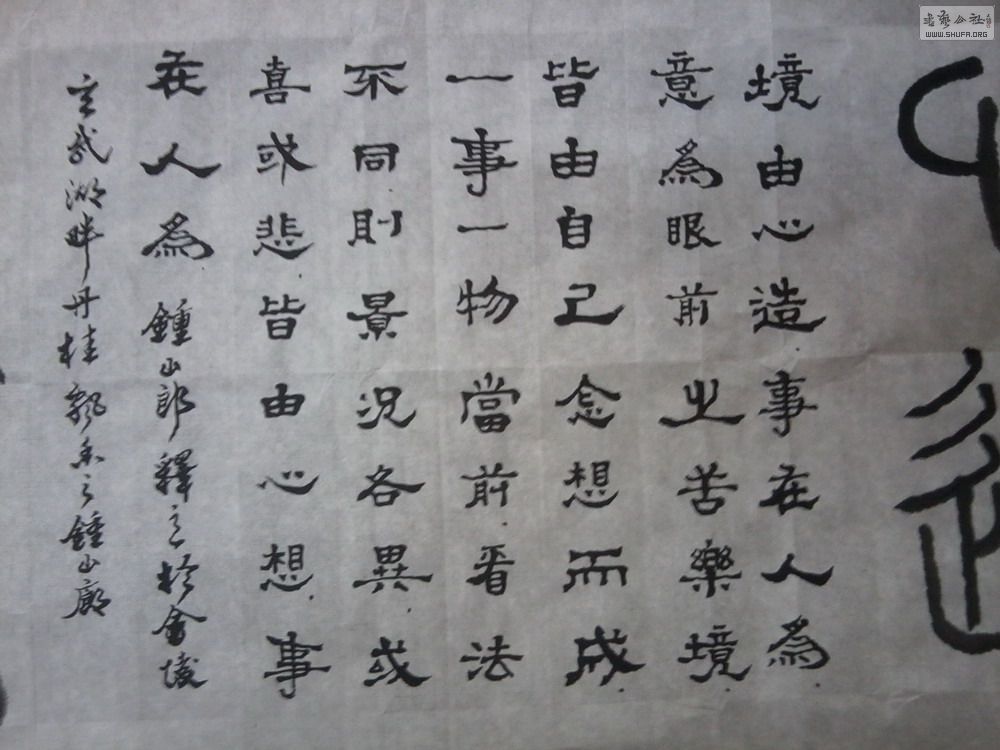 境由心造事在人為
意為眼前之苦樂境
皆由自己念想而成
一事一物當前看法
不同則景況各異或
喜或悲皆由心想事
在人為 鍾山郎釋之於金陵
玄武湖畔丹桂飄香之鍾山廊
書藝公社
WWW.SHUFA.ORG